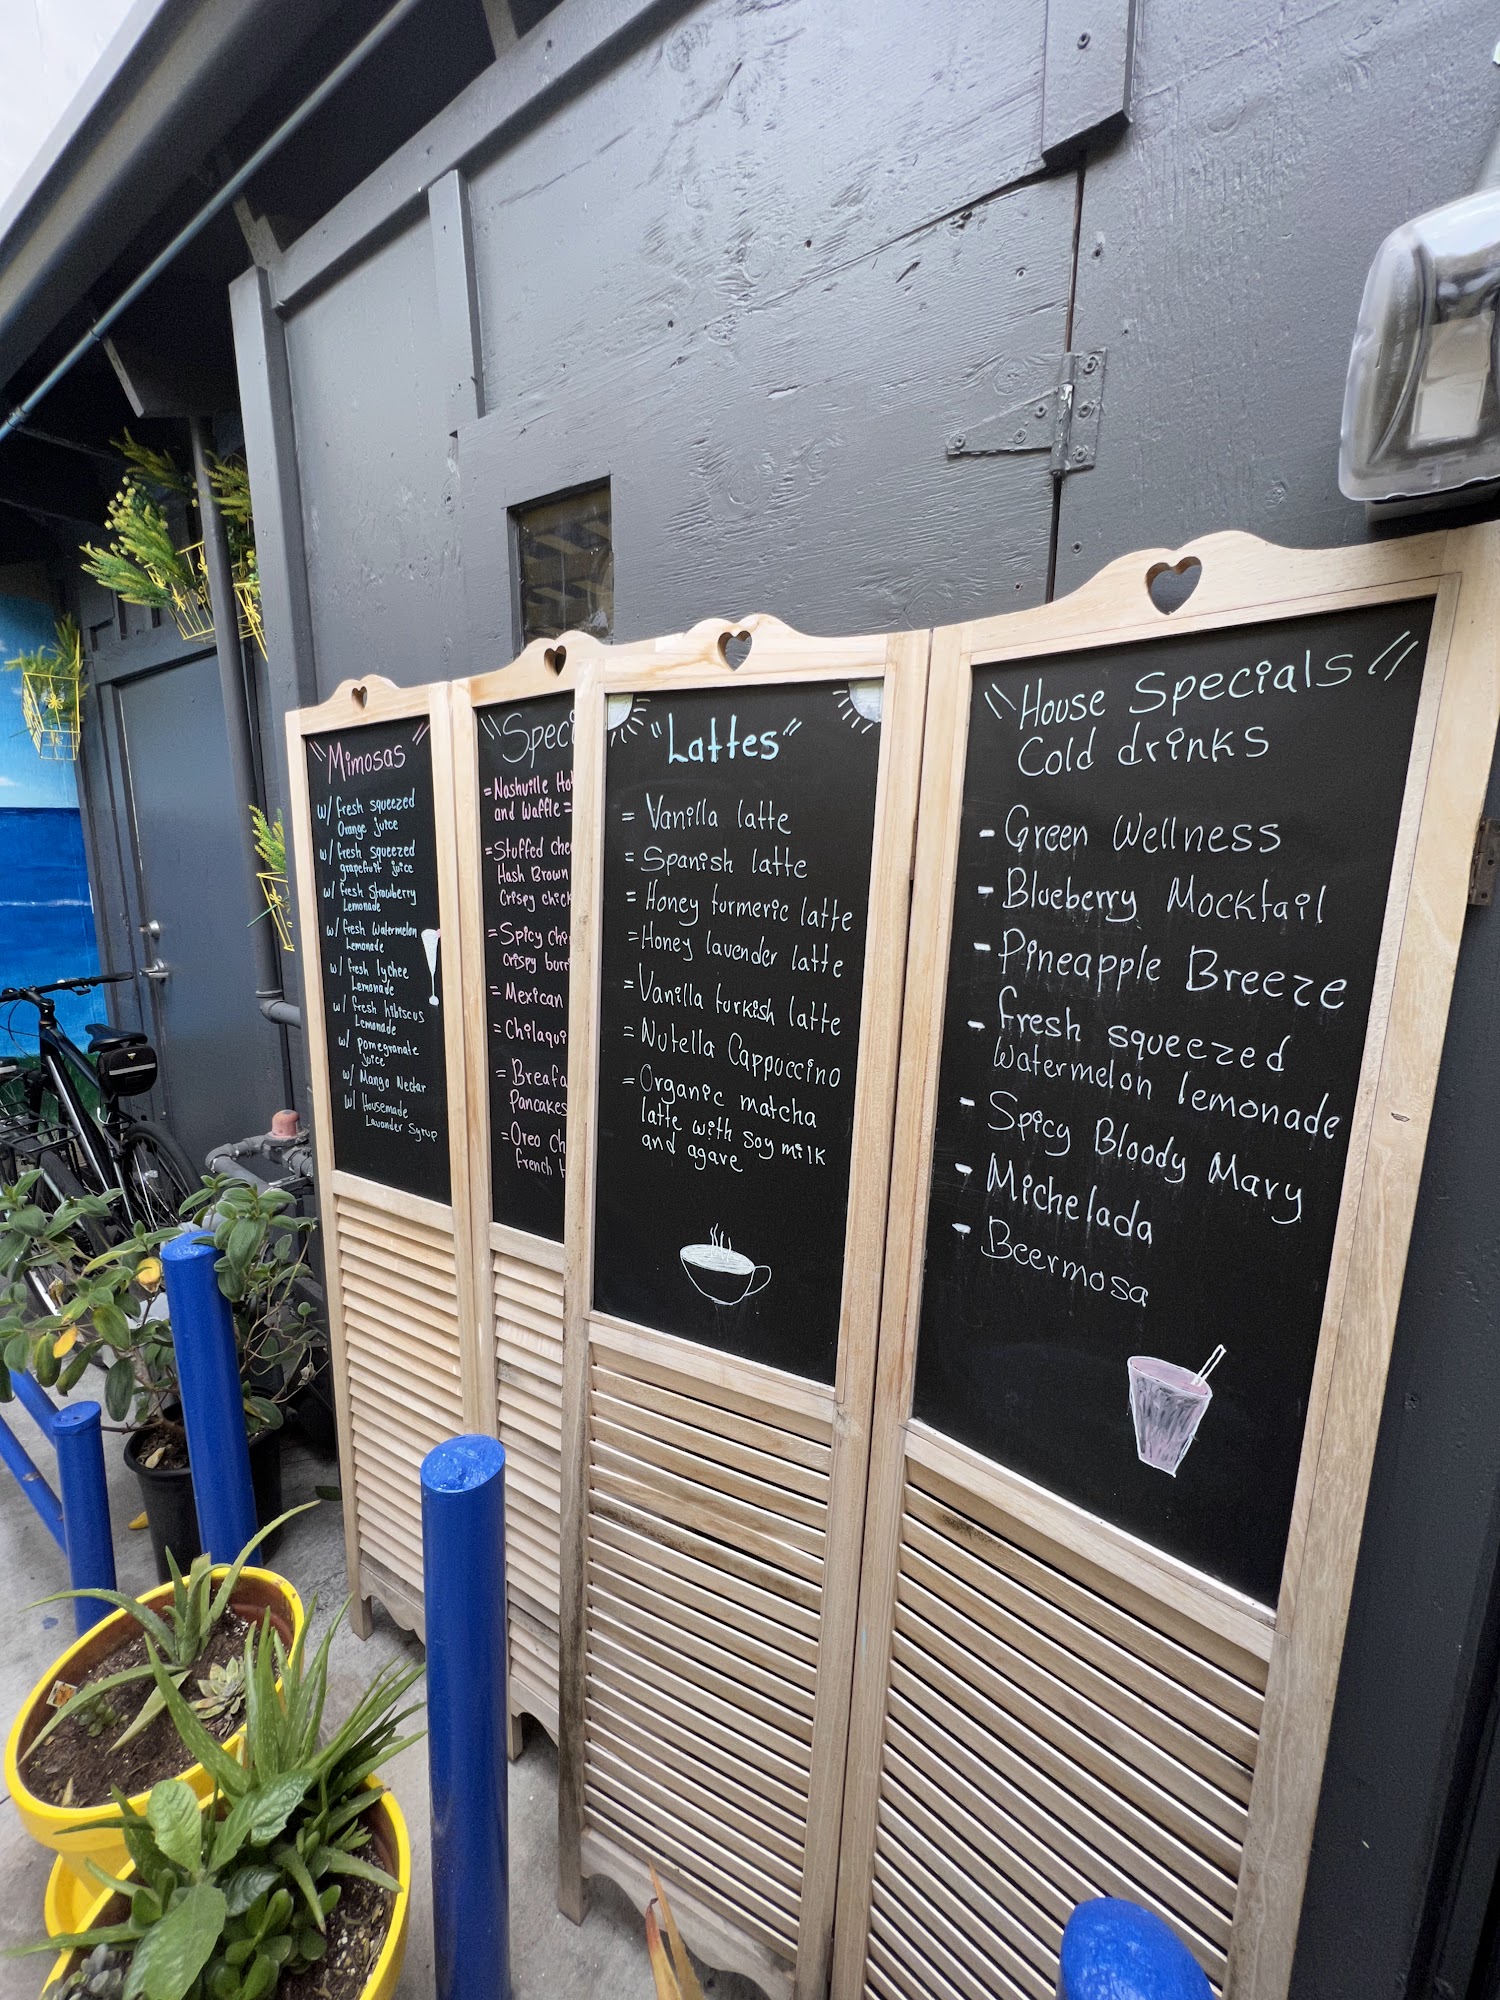 "Mimosas"
w/ fresh squeezed
Orange juice
w/ fresh squeezed
grapefruit juice
w/ fresh Strawberry
Lemonade
w/ fresh watermelon
Lemonade
w/ fresh lychee
Lemonade
w/ fresh hibiscus
Lemonade
w/ pomegranate
juice
w/ Mango Nectar
w/ Housemade
Lavander Syrup
"Speci
= Nashville Ho
and Waffle =
= Stuffed che
Hash Brown
Crispy chick
= Spicy chi
crispy burri
= Mexican
= Chilaqui
= Breafa
Pancakes
= Oreo ch
french t
"Lattes"
= Vanilla latte
= Spanish latte
= Honey turmeric latte
= Honey lavender latte
= Vanilla turkish latte
= Nutella Cappuccino
= Organic matcha
latte with soy milk
and agave
"House Specials"
Cold drinks
- Green Wellness
- Blueberry Mocktail
- Pineapple Breeze
- fresh squeezed
watermelon lemonade
- Spicy Bloody Mary
- Michelada
- Beermosa